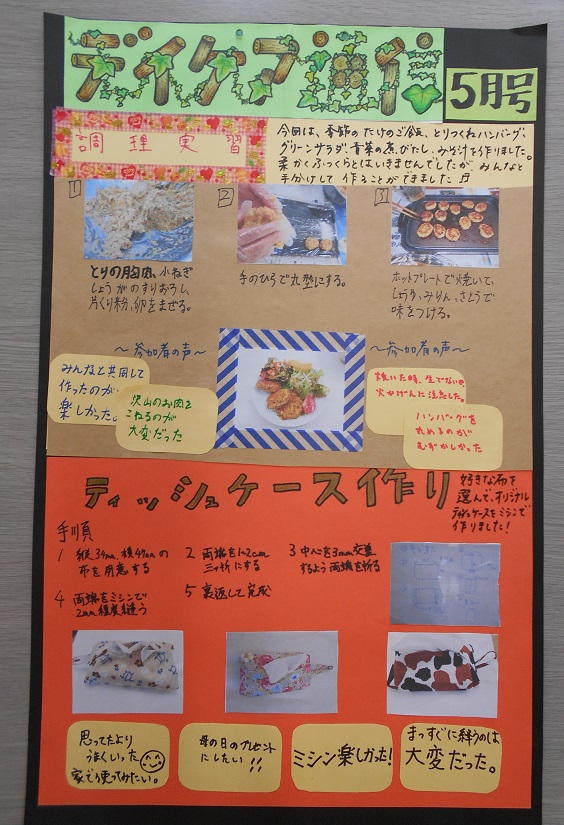 デイケア通信
5月号
調理実習
今回は、季節のたけのこご飯、とりつくねハンバーグ、
グリーンサラダ、青菜の煮びたし、みそ汁を作りました。
柔かくふっくらとはいきませんでしたが みんなと
手分けして 作ることができました
1
2
3
とりの胸肉、小ねぎ
しょうがのすりおろし、
片くり粉、卵をまぜる。
手のひらで丸型にする。
ホットプレートで焼いて、
しょうゆ、みりん、さとうで
味をつける。
～参加者の声～
～参加者の声～
みんなと共同して
作ったのが
楽しかった。
沢山のお肉を
こねるのが
大変だった
焼いた時、生でないか
火かげんに注意した。
ハンバーグを
丸めるのが
むずかしかった
ティッシュケース作り
好きな布を
選んで、オリジナル
ティッシュケースをミシンで
作りました!
手順
1 縦34cm、横47cmの
布を用意する
2 両端を1~2cm
三ッ折にする
3 中心を3mm交差
するよう両端を折る
4 両端をミシンで
2mm程度縫う
5 裏返して完成
思ってたより
うまくいった
家でも使ってみたい。
母の日のプレゼント
にしたい!!
ミシン楽しかった!
まっすぐに縫うのは
大変だった。